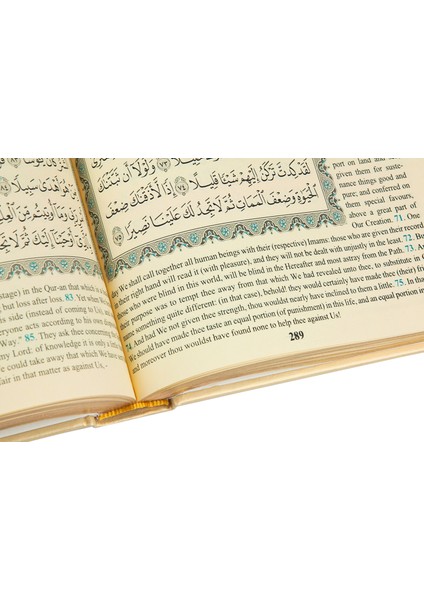 هُوَ أَهْدَىٰ سَبِيلًا ٨٤
رَبِّي وَمَا أُوتِيتُم مِّنَ
أَوْحَيْنَا إِلَيْكَ ثُمَّ لَا تَجِدُ
stage) in the Qur-an that which is
but loss after loss. 83. Yet when We
side (instead of coming to Us),
everyone acts according to his own
Way." 85. They ask thee concerning
my Lord: of knowledge it is only a
We could take away that which We have
air in that matter as against Us,.
٧٣ وَلَوْلَا أَن ثَبَّتْنَٰكَ
لَقَدْ كِدتَّ تَرْكَنُ إِلَيْهِمْ شَيْـًٔا قَلِيلًا ٧٤ إِذًا لَّأَذَقْنَٰكَ ضِعْفَ
ٱلْحَيَوٰةِ وَضِعْفَ ٱلْمَمَاتِ ثُمَّ لَا تَجِدُ لَكَ عَلَيْنَا نَصِيرًا ٧٥
port on land and
given them for suste-
nance things good and
pure; and conferred on
them special favours,
above a great part of
Our Creation. 71. One
day We shall call together all human beings with their (respective) Imams: those who are given their record
in their right hand will read it (with pleasure), and they will not be dealt with unjustly in the least. 72. But
those who were blind in this world, will be blind in the Hereafter and most astray from the Path. 73. And
their purpose was to tempt thee away from that which We had revealed unto thee, to substitute in Our
something quite different: (in that case), behold! they would certainly have made thee (their) friend!
74. And had We not given thee strength, thou wouldst nearly have inclined to them a little. 75. In that
We should have made thee taste an equal portion (of punishment) in this life, and an equal portion in
and moreover thou wouldst have found none to help thee against Us!
289